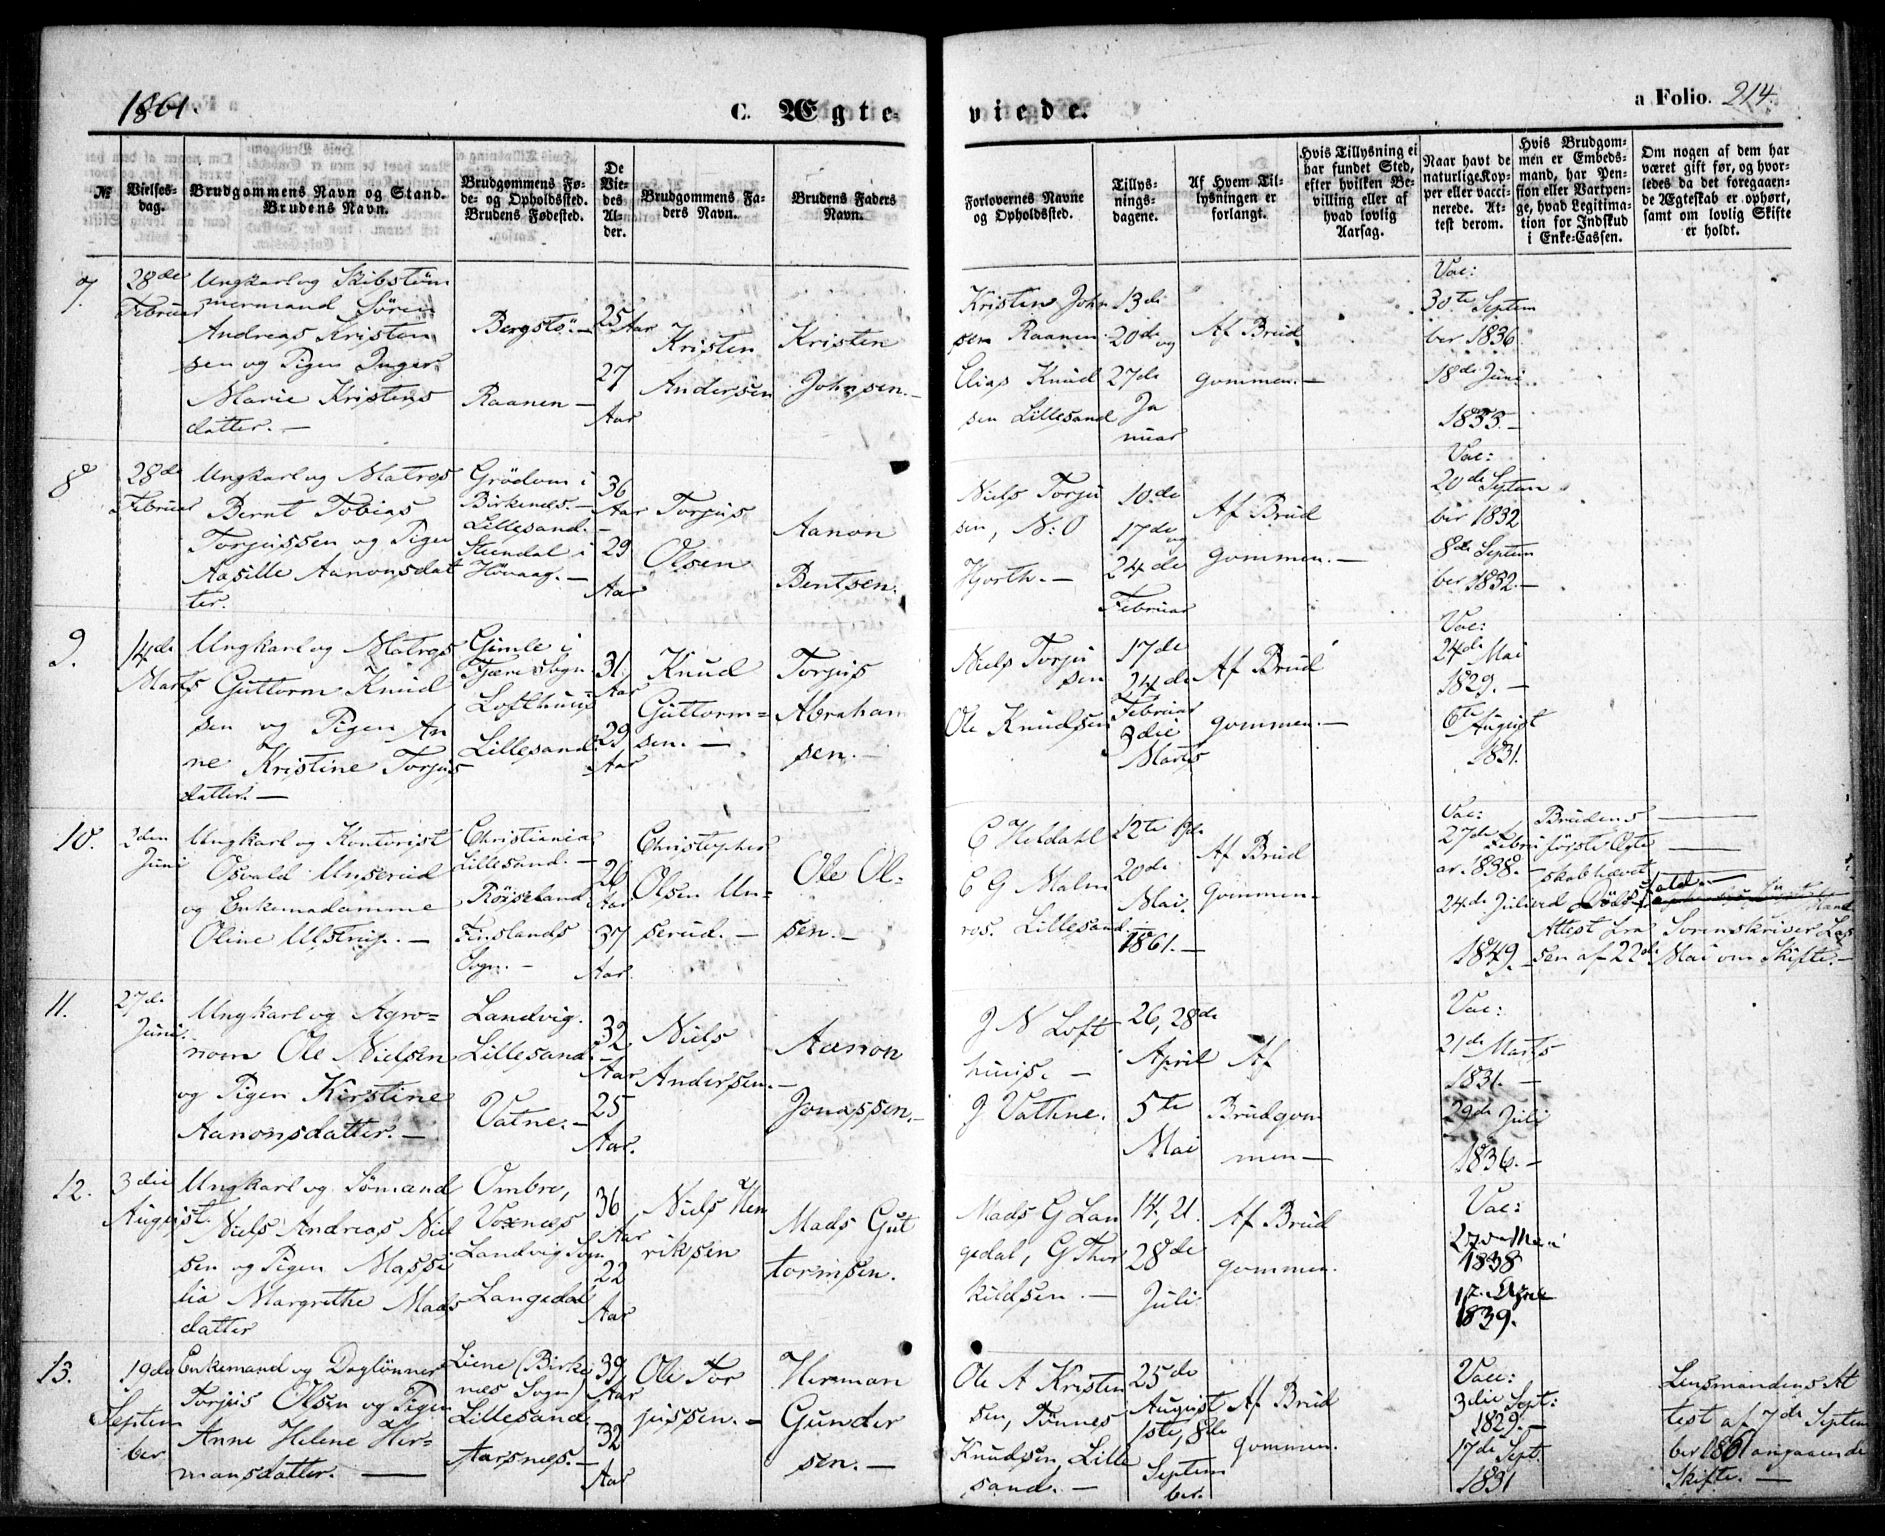 1861.
C. Ægte-
viede.
a Folio. 214.
№
Vielses-
dag.
Brudgommens Navn og Stand.
Brudens Navn.
Brudgommens Fø-
de- og Opholdssted.
Brudens Fødested.
De
Vie-
des
Al-
der.
Brudgommens Fa-
ders Navn.
Brudens Faders
Navn.
Forlovernes Navne
og Opholdssted.
Tillys-
nings-
dagene.
Af Hvem Til-
lysningen er
forlangt.
Hvis Tillysning ei
har fundet Sted,
efter hvilken Be-
villing eller af
hvad lovlig
Aarsag.
Naar havt de
naturlige Kop-
per eller vacci-
nerede. At-
test derom.
Hvis Brudgom-
men er Embeds-
mand, har Pen-
sion eller Vartpen-
ge, hvad Legitima-
tion for Indskud
i Enke-Cassen.
Om nogen af dem har
været gift før, og hvor-
ledes da det foregaaen-
de Ægteskab er ophørt,
samt om lovlig Skifte
er holdt.
7.
28de
Februar
Ungkarl og Skibstöm
mermand Sören
Andreas Kristen
sen og Pigen Inger
Marie Kristens
datter. —
Bergstö. —
Raanen —
25 Aar
27
Aar
Kristen
Andersen
Kristen
Johnsen. —
Kristen John
sen Raanen.
Elias Knud
sen Lillesand
13de
20de og
27de
Ja
nuar
Af Brud
gommen. —
Vac:
30te Septem
ber 1836
18de Juni
1833. —
8
28de
Februar
Ungkarl og Matros
Bernt Tobias
Torjussen og Pigen
Aasille Aanonsdat
ter.
Grödum i
Birkenes. —
Lillesand. —
Steendal i
Hövaag. —
36
Aar
29
Aar
Torjus
Olsen
Aanon
Bentsen.
Niels Torju
sen, N: O
Hjorth. —
10de
17de
og
24de
Februar
Af Brud
gommen. —
Vac:
20de Septem
ber 1832
8de Septem
ber 1832. —
9.
14de
Marts
Ungkarl og Matros
Guttorm Knud
sen og Pigen An
ne Kristine Torjus
datter. —
Gimle i
Tjære Sogn
Lofthuus
Lillesand.
31
Aar
29
Aar
Knud
Guttorm=
sen. —
Torjus
Abraham
sen. —
Niels Torju
sen
Ole Knudsen
17de
24de
Februar
3die
Marts
Af Brud
gommen. —
Vac:
24de Mai
1829. —
6te August
1831.
10.
3den
Juni
Ungkarl og Kontorist
Osvald Unserud
og Enkemadamme
Oline Ulstrup. —
Christiania
Lillesand. —
Röiseland
Finslands
Sogn. —
26
Aar
37
Aar
Christopher
Olsen Un-
serud. —
Ole Ol-
sen. —
C Heldahl
C G Malm
ros. Lillesand. —
12te 19de
20de
Mai.
1861. —
Af Brud
gommen —
Vac:
27de Febru
ar 1838. —
24de Juli
1849. —
Brudens
förste Ægte
skab hævet
ved Dödsfald. —
Attest fra Sorenskriver Las
sen af 22de Mai om Skifte. —
11.
27de
Juni.
Ungkarl og Agro=
nom Ole Nielsen
og Pigen Kirstine
Aanonsdatter. —
Landvig.
Lillesand. —
Vatne. —
32
Aar
25
Aar.
Niels
Andersen. —
Aanon
Jonassen. —
J N Loft
huus. —
J Vathne.
26, 28de
April
5te
Mai
Af
Brudgom
men —
Vac:
21de Marts
1831. —
29de Juli
1836. —
12.
3die
August.
Ungkarl og Sömand
Niels Andreas Niel
sen og Pigen Massi
lia Margrethe Mads
datter
Ombre,
Voxnæs
Landvig Sogn
Langedal
36
Aar
22
Aar
Niels Hen
riksen
Mads Gut
tormsen.
Mads G Lan
gedal, G Thor
kildsen. —
14, 21.
28de
Juli
Af Brud
gommen.
Vac:
1838
1839.
13.
19de
Septem
ber
Enkemand og Daglönner
Torjus Olsen og Pigen
Anne Helene Her=
mansdatter. —
Liene (Birke
næs Sogn)
Lillesand —
Aarsnes. —
39
Aar
32
Aar
Ole Tor
jussen. —
Herman
Gunder
sen. —
Ole A Kristen
sen, Tönnes
Knudsen, Lille
sand. —
25de
August
1ste, 8de
Septem
ber.
Af Brud
gommen.
Vac:
3die Sept:
1829. —
17de Sept.
1831
Lensmandens At
test af 7de Septem
ber 1861 angaaende
Skifte. —